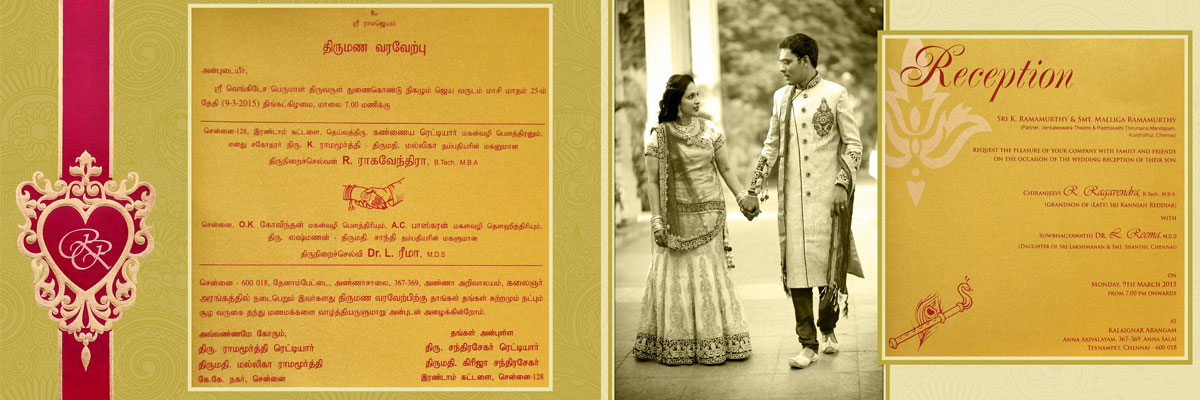 RR
உ
ஸ்ரீ ராமஜெயம்
திருமண வரவேற்பு
அன்புடையீர்,
ஸ்ரீ வெங்கிடேச பெருமாள் திருவருள் துணைகொண்டு நிகழும் ஜெய வருடம் மாசி மாதம் 25-ம்
தேதி (9-3-2015) திங்கட்கிழமை, மாலை 7.00 மணிக்கு
சென்னை-128, இரண்டாம் கட்டளை, தெய்வத்திரு. கண்ணைய ரெட்டியார் மகன்வழி பௌத்திரனும்,
எனது சகோதரர் திரு. K. ராமமூர்த்தி - திருமதி. மல்லிகா தம்பதியரின் மகனுமான
திருநிறைச்செல்வன் R. ராகவேந்திரா, B.Tech., M.B.A
சென்னை, O.K. கோவிந்தன் மகன்வழி பௌத்திரியும், A.C. பாஸ்கரன் மகள்வழி தௌஹித்திரியும்,
திரு. லஷ்மணன் - திருமதி. சாந்தி தம்பதியரின் மகளுமான
திருநிறைச்செல்வி Dr. L. ரீமா, M.D.S
சென்னை - 600 018, தேனாம்பேட்டை, அண்ணாசாலை, 367-369, அண்ணா அறிவாலயம், கலைஞர்
அரங்கத்தில் நடைபெறும் இவர்களது திருமண வரவேற்பிற்கு தாங்கள் தங்கள் சுற்றமும் நட்பும்
சூழ வருகை தந்து மணமக்களை வாழ்த்தியருளுமாறு அன்புடன் அழைக்கின்றோம்.
அவ்வண்ணமே கோரும்,
திரு. ராமமூர்த்தி ரெட்டியார்
திருமதி. மல்லிகா ராமமூர்த்தி
கே.கே. நகர், சென்னை
தங்கள் அன்புள்ள
திரு. சந்திரசேகர் ரெட்டியார்
திருமதி. கிரிஜா சந்திரசேகர்
இரண்டாம் கட்டளை, சென்னை-128
Reception
SRI K. RAMAMURTHY & SMT. MALLIGA RAMAMURTHY
(Partner, Venkateswara Theatre & Padmavathi Thirumana Mandapam,
Kundrathur, Chennai)
REQUEST THE PLEASURE OF YOUR COMPANY WITH FAMILY AND FRIENDS
ON THE OCCASION OF THE WEDDING RECEPTION OF THEIR SON
CHIRANJEEVI R. Ragavendra, B.Tech., M.B.A.
(GRANDSON OF (LATE) SRI KANNIAH REDDIAR)
WITH
SOWBHAGYAWATHI DR. L. Reema, M.D.S
(DAUGHTER OF SRI LAKSHMANAN & SME SHANTHI, CHENNAI)
ON
MONDAY, 9TH MARCH 2015
FROM 7.00 PM ONWARDS
AT
KALAIGNAR ARANGAM
ANNA ARIVALAYAM, 367-369, ANNA SALAI
TEYNAMPET, CHENNAI - 600 018